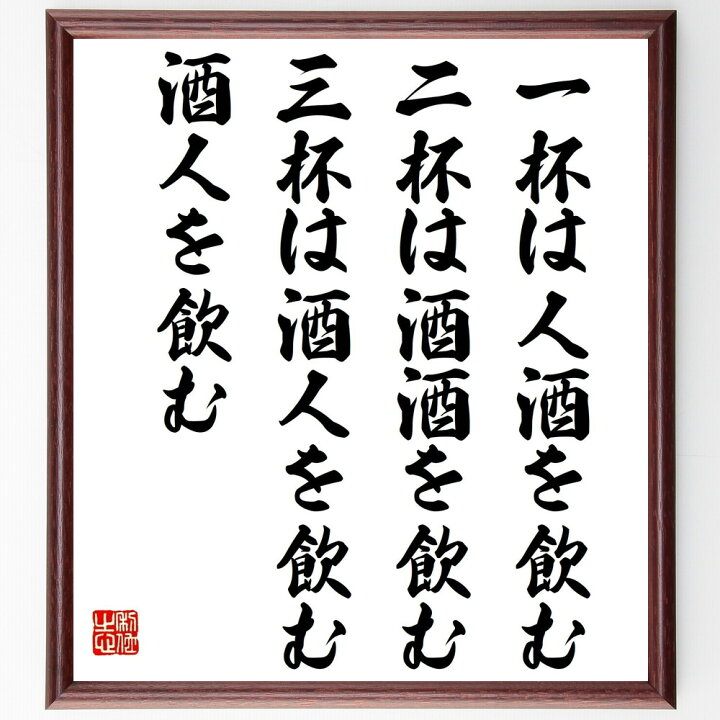 一杯は人酒を飲む
二杯は酒酒を飲む
三杯は酒人を飲む
酒人を飲む